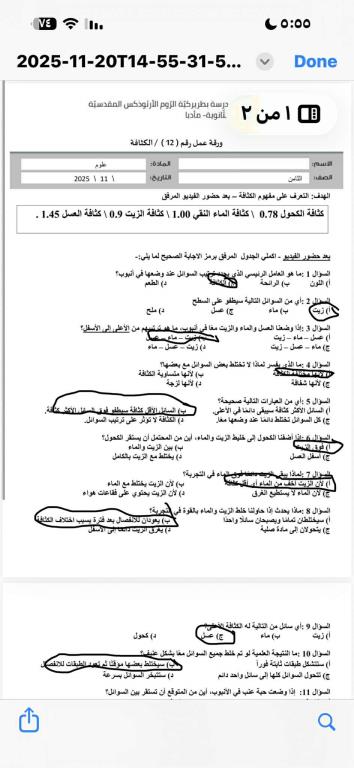 ٥:٥٥
٧٤
2025-11-20T14-55-31-5...
Done
١ من ٢
مدرسة بطريركيّة الرّوم الأرثوذكس المقدسيّة
الثانوية- مأدبا
ورقة عمل رقم ( 12 ) / الكثافة
الاسم:
المادة: علوم
الصف: الثامن
التاريخ: \ 11 \ 2025
الهدف: التعرف على مفهوم الكثافة – بعد حضور الفيديو المرفق
كثافة الكحول 0.78 \ كثافة الماء النقي 1.00 \ كثافة الزيت 0.9 \ كثافة العسل 1.45 .
بعد حضور الفيديو - اكملي الجدول المرفق برمز الاجابة الصحيح لما يلي:-
السؤال 1 :ما هو العامل الرئيسي الذي يحدد ترتيب السوائل عند وضعها في أنبوب؟
أ) اللون ب) الرائحة ج) الكثافة د) الطعم
السؤال 2 :أي من السوائل التالية سيطفو على السطح
أ) زيت ب) ماء ج) عسل د) ملح
السؤال 3 :إذا وضعنا العسل والماء والزيت معًا في أنبوب، ما هو ترتيبهم من الأعلى إلى الأسفل؟
أ) عسل – ماء – زيت ب) زيت – ماء – عسل
ج) ماء – عسل – زيت د) زيت – عسل – ماء
السؤال 4 :ما الذي يفسر لماذا لا تختلط بعض السوائل مع بعضها؟
أ) لأنها مختلفة الكثافة ب) لأنها متساوية الكثافة
ج) لأنها شفافة د) لأنها لزجة
السؤال 5 :أي من العبارات التالية صحيحة؟
أ) السائل الأكثر كثافة سيبقى دائمًا في الأعلى. ب) السائل الأقل كثافة سيطفو فوق السائل الأكثر كثافة.
ج) كل السوائل تختلط دائمًا عند وضعها معًا. د) الكثافة لا تؤثر على ترتيب السوائل.
السؤال 6 :إذا أضفنا الكحول إلى خليط الزيت والماء، أين من المحتمل أن يستقر الكحول؟
أ) فوق الزيت ب) بين الزيت والماء
ج) أسفل العسل د) يختلط مع الزيت بالكامل
السؤال 7 :لماذا يبقى الزيت دائمًا فوق الماء في التجربة؟
أ) لأن الزيت أخف من الماء أي أقل كثافة ب) لأن الزيت يختلط مع الماء
ج) لأن الماء لا يستطيع الغرق د) لأن الزيت يحتوي على فقاعات هواء
السؤال 8 :ماذا يحدث إذا حاولنا خلط الزيت والماء بالقوة في التجربة؟
أ) سيختلطان تمامًا ويصبحان سائلًا واحدًا ب) يعودان للانفصال بعد فترة بسبب اختلاف الكثافة
ج) يتحولان إلى مادة صلبة د) يغرق الزيت دائمًا إلى الأسفل
السؤال 9 :أي سائل من التالية له الكثافة الأعلى؟
أ) زيت ب) ماء ج) عسل د) كحول
السؤال 10 :ما النتيجة العلمية لو تم خلط جميع السوائل معًا بشكل عنيف؟
أ) ستتشكل طبقات ثابتة فوراً ب) سيختلط بعضها مؤقتًا ثم تعود الطبقات للانفصال
ج) تتحول السوائل كلها إلى سائل واحد دائم د) ستتبخر السوائل بسرعة
السؤال 11: إذا وضعت حبة عنب في الأنبوب، أين من المتوقع أن تستقر بين السوائل؟